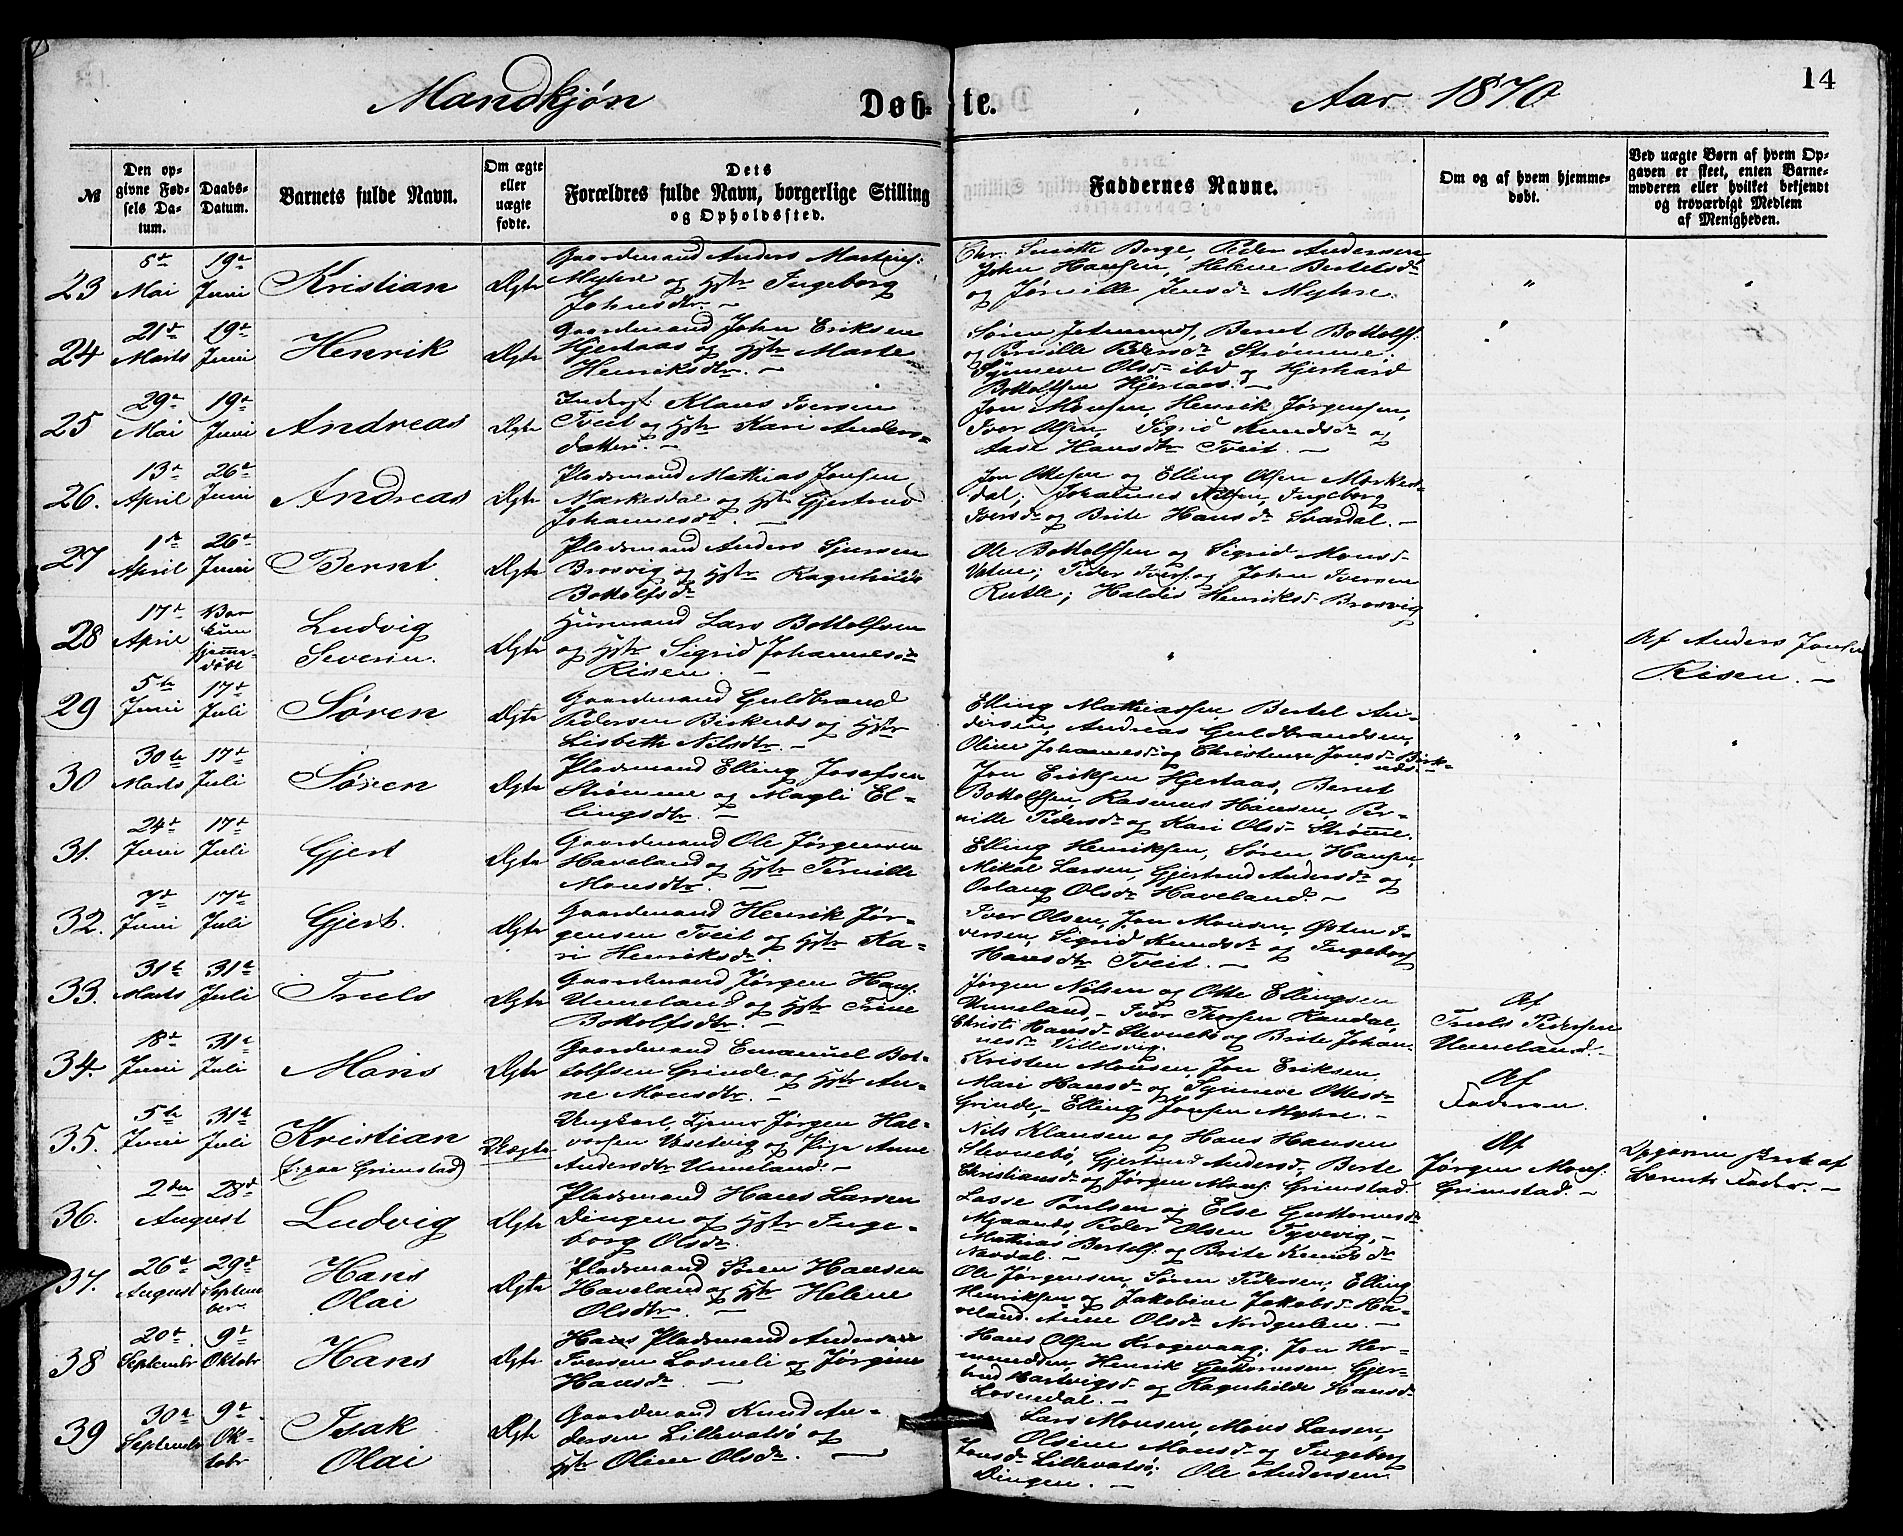 Mandkjøn Døb- te. Aar 1870 14
№
Den op-
givne Fød-
sels Da-
tum.
Daabs-
Datum.
Barnets fulde Navn.
Om ægte
eller
uægte
fødte.
Dets
Forældres fulde Navn, borgerlige Stilling
og Opholdssted.
Faddernes Navne.
Om og af hvem hjemme-
døbt.
Ved uægte Børn af hvem Op-
gaven er skeet, enten Barne-
moderen eller hvilket bekjendt
og troværdigt Medlem
af Menigheden.
23
Mai
19de
Juni
Kristian
Ægte
Gaardmand Anders Martins:
Myhre og Hstr Ingeborg
Johnsdtr. —
Chr: Smitte Berge, Peder Andersen,
John Hansen, Helene Bertelsd.
og Jørville Jensd. Myhre.
24
21de
Marts
19de
Juni
Henrik
Ægte
Gaardmand John Eriksen
Hjertaas og Hstr Marte
Henriksdtr. —
Bernt Bottolfs:
og Pernille Pedersd. Strømme,
Synneve Olsd. ibd og Gjerhard
Bottolfsen Hjertaas. —
25
29de
Mai
19de
Juni
Andreas
Ægte
Klaus Iversen
Tveit og Hstr Kari Anders-
datter. —
Jon Monsen, Henrik Jørgensen,
Iver Olsen, Sigrid Knudsd. og
Aase Hansdtr Tveit. —
26.
13de
April
26de
Juni
Andreas
Ægte
Pladsmand Mathias Jonsen
Mærkesdal og Hstr Gjertrud
Johannesd. —
Jon Ottesen og Elling Olsen Mærkes-
dal; Johannes Nilsen, Ingeborg
Iversd. og Brite Hansd. Svardal. —
27
1de
April
26de
Juni
Bernt
Ægte
Pladsmand Anders Sjursen
Brosvig og Hstr Ragnhilde
Bottolfsd.
Ole Bottolfsen og Sigrid Monsd.
Vatne; Peder Ivers: og John Iversen
Rutle; Haldis Henriksd. Brosvig
28
17de
April
Bar
kun
hjemme-
døbt
Ludvig
Severin.
Ægte
Huusmand Lars Bottolfsen
og Hstr Sigrid Johannesd.
Risen. —
Af Anders Jonsen
Risen. —
29
5te
Juni
17de
Juli
Søren
Ægte
Gaardmand Guldbrand
Pedersen Birknes og Hstr
Lisbeth Nilsdtr. —
Elling Mathiassen, Bertel An-
dersen, Andreas Guldbrandsen,
Oline Johannesd. og Christense Jonsd. Birk-
nes.
30
30te
Marts
17de
Juli
Søren
Ægte
Pladsmand Elling Josefsen
Strømme og Magli El-
lingsdtr. —
Jon Eriksen Hjertaas, Bernt
Bottolfsen, Rasmus Hansen, Per-
nille Pedersd. og Kari Olsd. Strømme.
31.
24de
Juni
17de
Juli
Gjert
Ægte
Gaardmand Ole Jørgensen
Haveland og Hstr Pernille
Monsdtr. —
Elling Henriksen, Søren Hansen,
Mikal Larsen, Gjertrud Andersd. og
Oslaug Olsd. Haveland. —
32.
7de
Juni
17de
Juli
Gjert.
Ægte
Gaardmand Henrik Jør-
gensen Tveit og Hstr Ka-
ri Henriksd. —
Iver Olsen, Jon Monsen, Østen I-
versen, Sigrid Knudsd. og Ingeborg
Hansdtr Tveit. —
33.
31te
Marts
31te
Juli
Truls
Ægte
Gaardmand Jørgen Hans:
Unneland og Hstr Trine
Bottolfsdtr. —
Jørgen Nilsen og Otte Ellingsen
Unneland, — Iver Thorsen Randal,
Christi Hansd. Stevnebø og Brite Johan-
nesd. Villesvig.
Af
Truls Pedersen
Unneland. —
34.
18de
Juni
31te
Juli
Mons
Ægte
Gaardmand Emanuel Bot-
tolfsen Grinde og Hstr An-
ne Monsdtr. —
Kristen Monsen, Jon Eriksen,
Mari Hansd. og Synneve Ottesd.
Grinde, — Elling Jonsen Myhre. —
Af
Faderen.
35.
5te
Juni
31te
Juli
Kristian
(: paa Grimstad)
Uægte
Ungkarl, Tjener Jørgen Hal-
vorsen Vasetvig og Pige Anne
Andersdtr Unneland. —
Nils Klausen og Hans Hansen
Stevnebø, Gjertrud Andersd., Berte
Christiansd. og Jørgen Mons: Grimstad.
Af
Jørgen Mons:
Grimstad. —
Opgaven skeet af
Barnets Fader. —
36.
2den
August
28de
Ludvig
Ægte
Pladsmand Hans Larsen
Dingen og Hstr Inge-
borg Olsd.
Lasse Poulsen og Else Guttormsd.
Mjaanes, Peder Olsen Tyvevig, —
Mathias Bertels: og Brite Knudsd.
Nardal. —
37.
26de
August
29de
Septem
ber.
Hans
Olai
Ægte
Pladsmand Søren Hansen
Haveland og Hstr Helene
Olsdtr. —
Ole Jørgensen, Søren Pedersen, Elling
Henriksen og Jakobine Jakobsd. Ha-
veland. Anne Olsd. Nordgulen. —
38
20de
Septembr
9de
Oktobr
Hans
Ægte
Hans Pladsmand Anders
Iversen Losneli og Jørgine
Hansd. —
Hans Olsen Krogevaag; Jon Her-
mundsen, Henrik Guttormsen, Gjer-
trud Hartvigsd. og Ragnhilde Hansd.
Losnedal. —
39
30te
Septembr
9de
Ok-
tobr
Isak
Olai
Ægte
Gaardmand Knud An-
dersen Lillevatsø og
Hstr Oline Olsd. —
Lars Monsen, Mons Larsen,
Olsine Monsd. og Ingeborg
Jonsd. Lillevatsø; Ole Andersen
Dingen. —